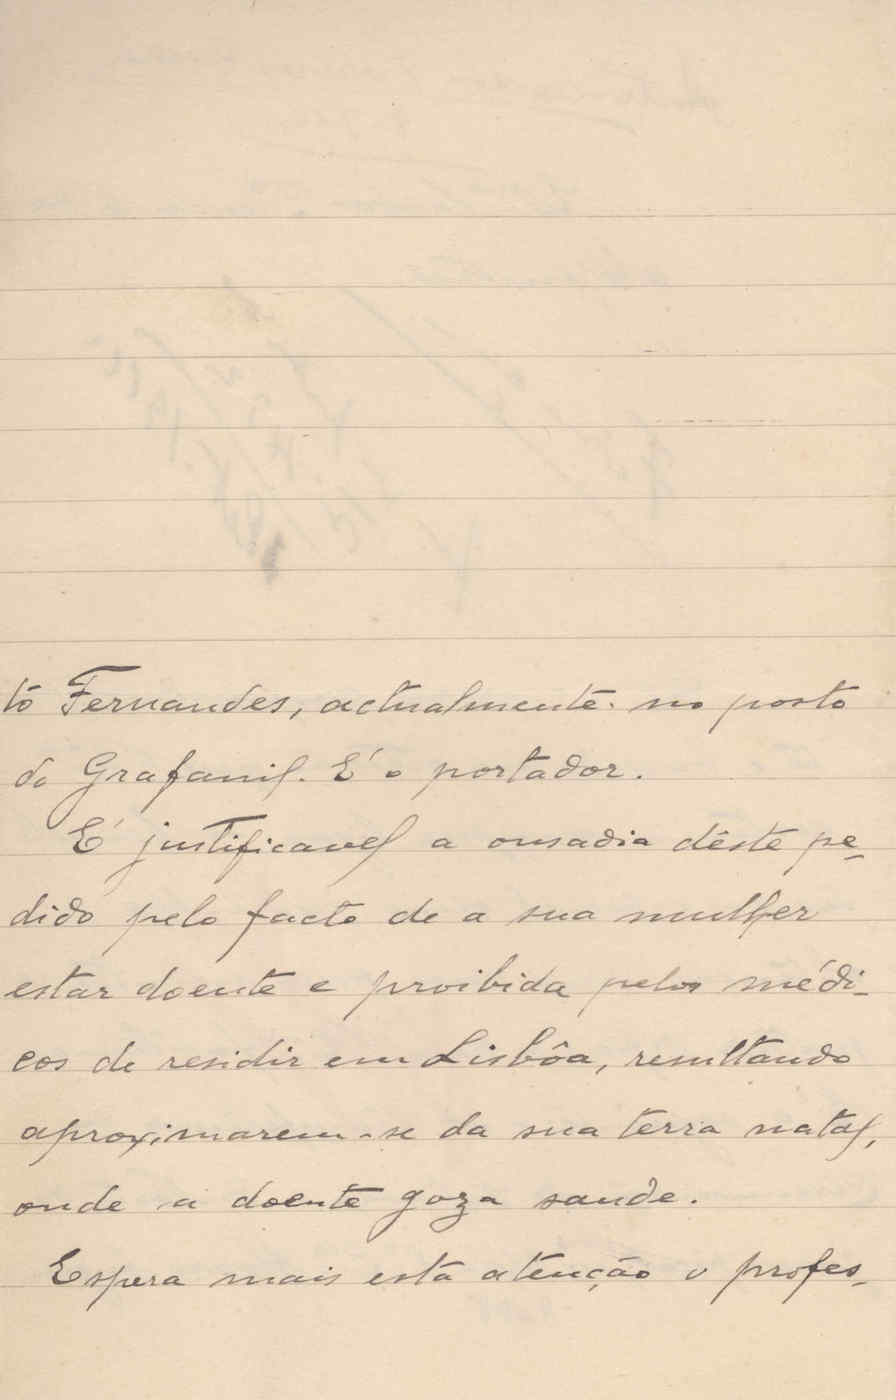 tó Fernandes, actualmente no posto
do Grafanil. É o portador.
É justificavel a ousadia dêste pe-
dido pelo facto de a sua mulher
estar doente e proibida pelos médi-
cos de residir em Lisbôa, resultando
aproximarem-se da sua terra natal,
onde a doente goza saude.
Espera mais esta atenção o profes-